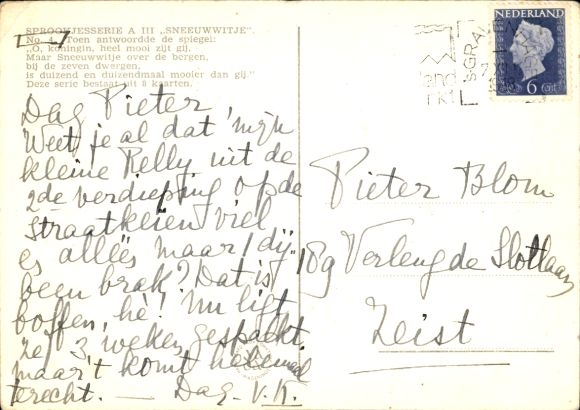 SPROOKJESSERIE A III „SNEEUWWITJE".
No. 4. Toen antwoordde de spiegel:
„O, koningin, heel mooi zijt gij,
Maar Sneeuwwitje over de bergen,
bij de zeven dwergen,
is duizend en duizendmaal mooier dan gij."
Deze serie bestaat uit 8 kaarten.
Dag Pieter,
Weet je al dat mijn
kleine Kelly uit de
2de verdieping op de
straatkeien viel
en alles maar 1 dij-
been brak? Dat is
boffen, hè! Nu ligt
ze 3 weken gespalkt,
maar 't komt helemaal
terecht. — Dag. V. K.
NEDERLAND
6 ct
Pieter Blom
189 Verlengde Slotlaan
Zeist